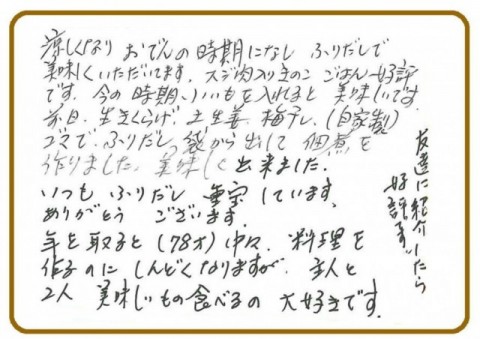 涼しくなり おでんの時期になし ふりだしで
美味しくいただいてます。スジ肉入りきのこごはん好評
です。今の時期、いもを入れると美味しいです
前日、生きくらげ、土生姜、梅干し、(自家製)
ゴマで、ふりだし袋から出して 佃煮を
作りました。美味しく出来ました。
いつも ふりだし 重宝しています。
ありがとう ございます
年を取ると(78才)中々、料理を
作るのに しんどくなりますが、主人と
2人 美味しいもの食べるの 大好きです。
友達に紹介したら
好評です